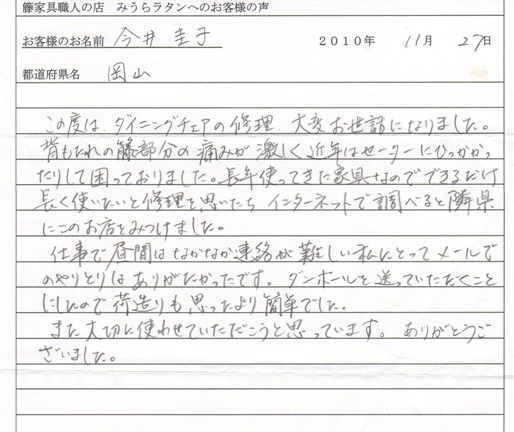 籐家具職人の店　みうらラタンへのお客様の声
お客様のお名前　今井　圭子　　２０１０年　11月　27日
都道府県名　岡山
この度は、ダイニングチェアの修理、大変お世話になりました。
背もたれの籐部分の痛みが激しく近年はセーターにひっかかっ
たりして困っておりました。長年使ってきた家具なのでできるだけ
長く使いたいと修理を思いたち インターネットで調べると隣県
にこのお店をみつけました。
仕事で昼間はなかなか連絡が難しい私にとってメールで
のやりとりはありがたかったです。ダンボールを送っていただくこと
にしたので荷造りも思ったより簡単でした。
また大切に使わせていただこうと思っています。ありがとうご
ざいました。